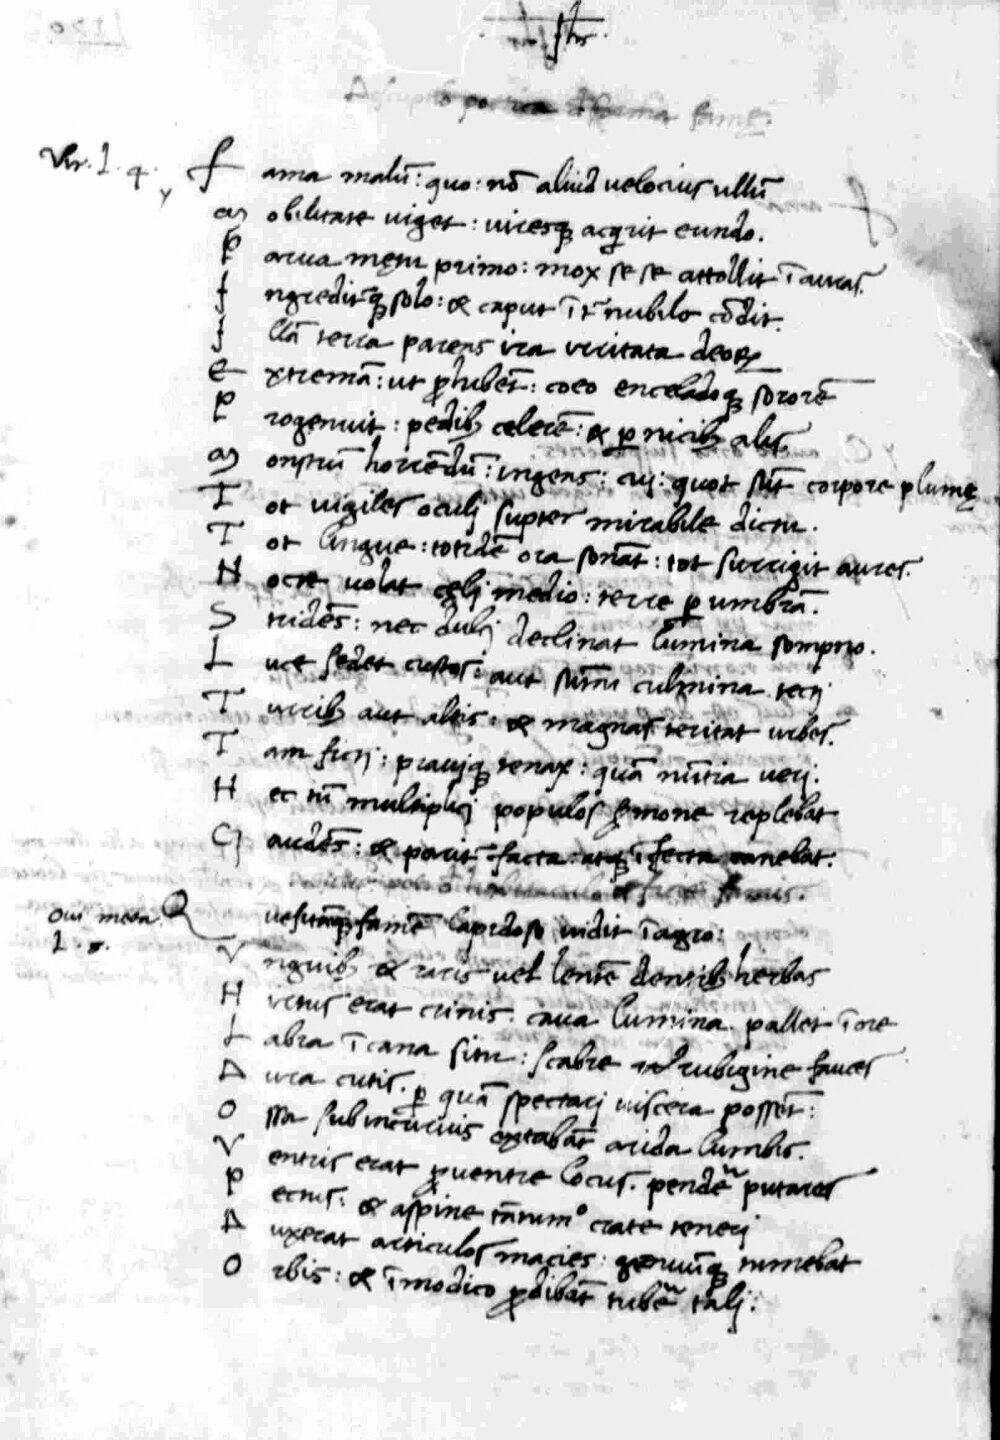 yhs
Descriptio poetica de forma famę.
Vir. l. 4.
Fama malũ: quo: nõ aliud uelocius ullũ
Mobilitate uiget: uiresqꝫ acq̃rit eundo.
Parua mętu primo: mox se se attollit ĩ auras.
Ingreditꝰqꝫ solo: & caput ĩt̃ nubila cõdit.
Illã terra parens ira irritata deoꝝ
Extremã: ut ꝓhibẽt: coeo enceladoqꝫ sororẽ
Progenuit: pedibꝫ celerẽ: & ꝑnicibꝫ alis.
Monstrũ horrẽdũ: ingens: cuj: quot sũt corpore plumę
Tot uigiles oculj supter mirabile dictu.
Tot lingue: totidẽ ora sonãt: tot surrigit aures.
Nocte uolat cęlj medio: terre ꝑ umbrã.
Stridẽs: nec dulcj declinat lumina sompno.
Luce sedet custos: aut sũmi culmina tectj
Turribꝫ aut altis: & magnas territat urbes.
Tam fictj: prauiqꝫ tenax: quã nũtia uerj.
Hec tũ multiplicj populos ſmone replebat
Gaudẽs: & parit̃ facta: atqꝫ ĩfecta canebat:
Oui meta. l. 8.
Quesitãqꝫ famẽ lapidoso uidit ĩ agro:
Vnguibꝫ & raris uellentẽ dentibꝫ herbas
Hirtus erat crinis. caua lumina. pallet ĩ ore
Labra ĩcana situ: scabre rubigine fauces
Dura cutis. ꝑ quã spectarj uiscera possẽt:
Ossa sub incuruis extabãt arida lumbis.
Ventris erat ꝓ uentre locus. pendẽ putares
Pectus: & a spine tñtum crate tenerj
Auxerat articulos macies: genuũqꝫ tumebat
Orbis: & ĩmodico ꝓdibãt tubẽ talj: